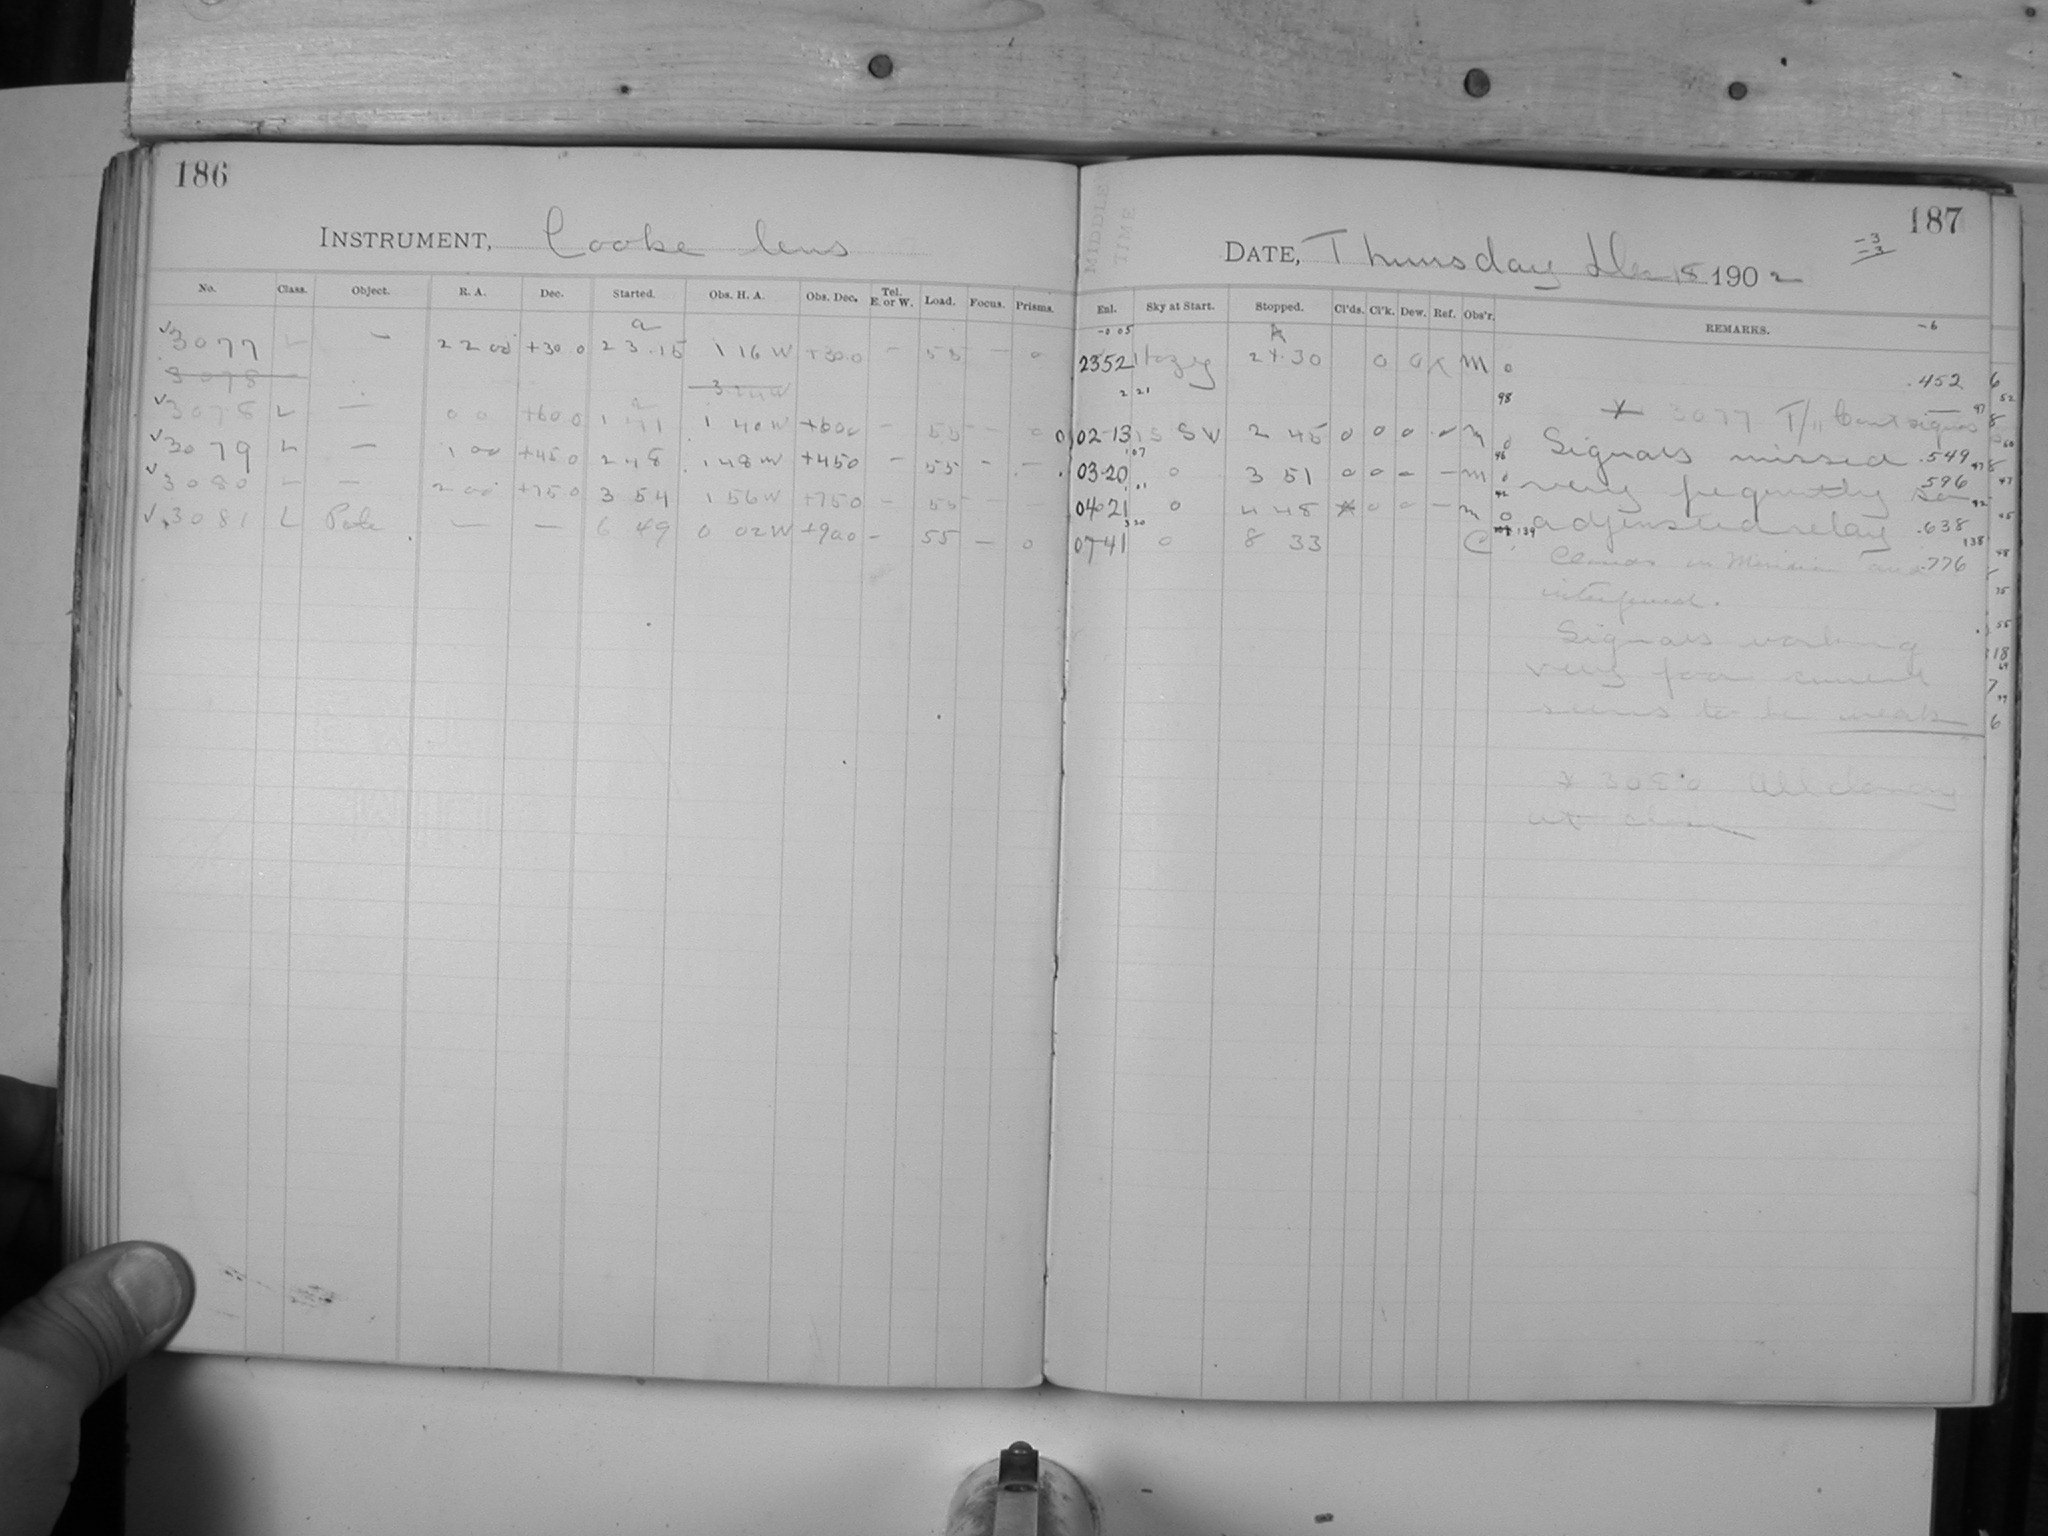 186
INSTRUMENT, Cooke lens
No. Class. Object. R. A. Dec. Started. Obs. H. A. Obs. Dec. Tel. E. or W. Load. Focus. Prisms.
a
√3077 L — 22 00 +30 0 23.15 1 16 W +30.0 — 55 — 0
3078 —
√3078 L — 0 0 +60 0 1 41 1 40 W +600 — 55 — 0
√3079 L — 1 00 +45 0 2 48 1 48 W +450 — 55 - —
√3080 — — 2 00 +75 0 3 54 1 56 W +750 — 55 —
√3081 L Pole — — 6 49 0 02 W +900 - 55 — 0
MIDDLE
TIME
187
-3
-3
DATE, Thursday Dec 18 1902
Enl. Sky at Start. Stopped. Cl'ds. Cl'k. Dew. Ref. Obs'r. REMARKS. -6
-0 05
2352 Hazy 24.30 0 0 M 0 .452
2 21 98 97
02-13 S V 2 45 0 0 0 M 0 .549
1 07
03-20 0 3 51 0 0 - — M 0 .596
04021 0 4 48 * 0 0 — M 0 .638
3 20 139 138
0741 0 8 33 C .776
* 3077 T/11
Signals missed
very frequently
adjusted relay
Clouds in Meridian and
interfered.
Signals working
very poor current
seems to be weak
* 3080 cloudy
at close